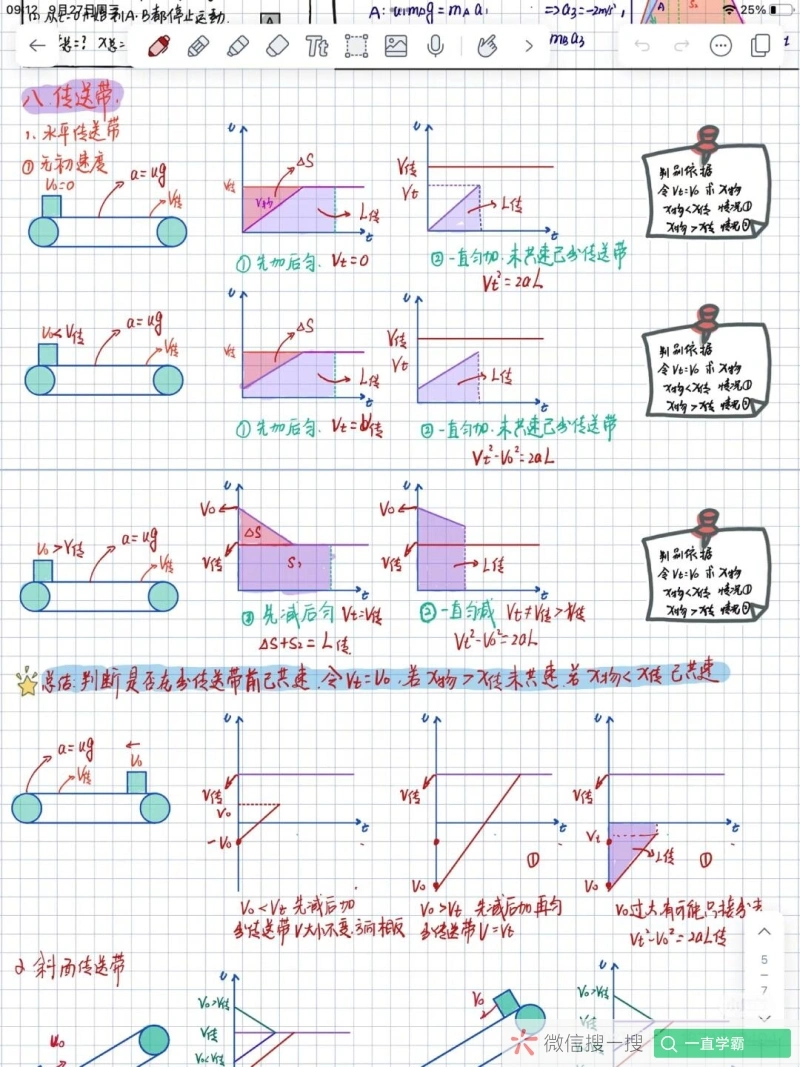 09:12 9月27日周三
25%
A·B都停止运动
A: u₁mog = mA a₁ ⇒a₃=-2m/s²,
mBa₃
八.传送带.
1.水平传送带
①无初速度
V₀=0
a=ug
V传
υ
V传
V物
ΔS
L传
t
①先加后匀. Vt=0
υ
V传
Vt
L传
t
②一直匀加.未共速已分传送带
Vt²=2aL
判别依据
令Vt=V₀ 求X物
X物<X传 情况①
X物>X传 情况②
V₀<V传
a=ug
V传
υ
V传
ΔS
L传
t
①先加后匀.
υ
V传
Vt
L传
t
②一直匀加.未共速已分传送带
Vt²-V₀²=2aL
判别依据
令Vt=V₀ 求X物
X物<X传 情况①
X物>X传 情况②
V₀>V传
a=ug
V传
υ
V₀
V传
ΔS
S₂
t
①先减后匀 Vt=V传
ΔS+S₂=L传
υ
V₀
V传
L传
t
②一直匀减 Vt≠V传>V传
Vt²-V₀²=2aL
判别依据
令Vt=V₀ 求X物
X物<X传 情况①
X物>X传 情况②
总结:判断是否在分传送带前已共速.令Vt=V₀.若X物>X传未共速.若X物<X传已共速
a=ug
V传
V₀
υ
V传
V₀
-V₀
t
V₀<Vt 先减后加
分传送带V大小不变.方向相反
υ
V传
V₀
t
①
V₀>Vt 先减后加再匀
分传送带V=Vt
υ
V传
Vt
V₀
L传
t
①
V₀过大有可能只接分去
Vt²-V₀²=2aL传
5
7
2.斜面传送带
υ
V₀>V传
V传
V₀<V传
V₀
υ
V₀>V传
微信搜一搜
一直学霸